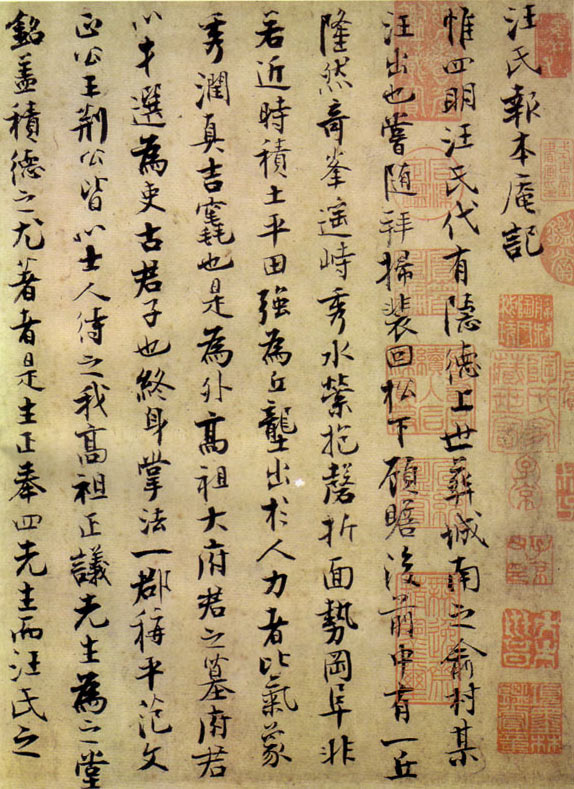 汪氏報本庵記
惟四明汪氏代有隱德上世葬城南之俞村某
汪出也嘗随拜掃裴回松下顧瞻後前中有一丘
隆然奇峯遥峙秀水縈抱磬折面勢岡阜非
若近時積土平田強為丘壟出於人力者比氣象
秀潤真吉竁也是為外高祖大府君之墓府君
以才選為吏古君子也終身掌法一郡稱平范文
正公王荆公皆以士人待之我高祖正議先生為之堂
銘盖積德之尤著者是生正奉四先生而汪氏之